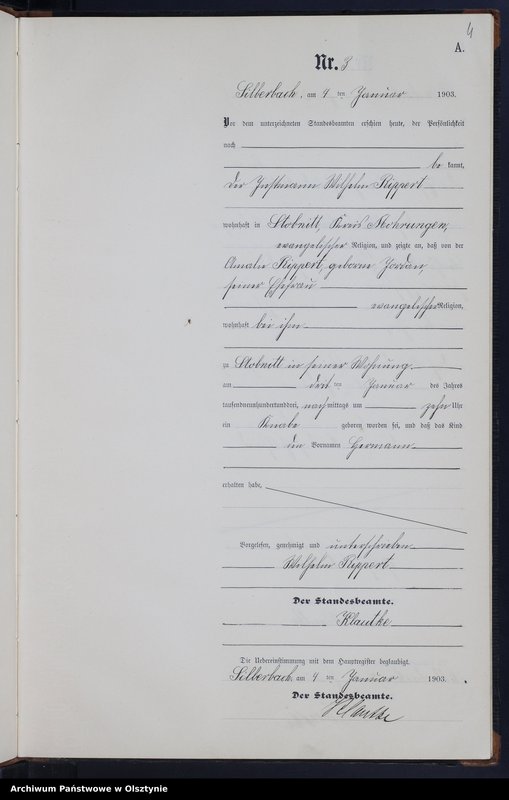 4
A.
Nr. 3
Silberbach, am 4 ten Januar 1903.
Vor dem unterzeichneten Standesbeamten erschien heute, der Persönlichkeit
nach
be kannt,
der Instmann Wilhelm Rippert
wohnhaft in Stobnitt, Kreis Mohrungen,
evangelischer Religion, und zeigte an, daß von der
Amalie Rippert, geborne Jordan,
seiner Ehefrau
evangelischer Religion,
wohnhaft bei ihm
zu Stobnitt in seiner Wohnung
am drei ten Januar des Jahres
tausendneunhundertunddrei, nach mittags um zehn Uhr
ein Knabe geboren worden sei, und daß das Kind
den Vornamen Hermann
erhalten habe,
Vorgelesen, genehmigt und unterschrieben
Wilhelm Rippert
Der Standesbeamte.
Klautke
Die Uebereinstimmung mit dem Hauptregister beglaubigt.
Silberbach, am 4 ten Januar 1903.
Der Standesbeamte.
Klautke
Archiwum Państwowe w Olsztynie